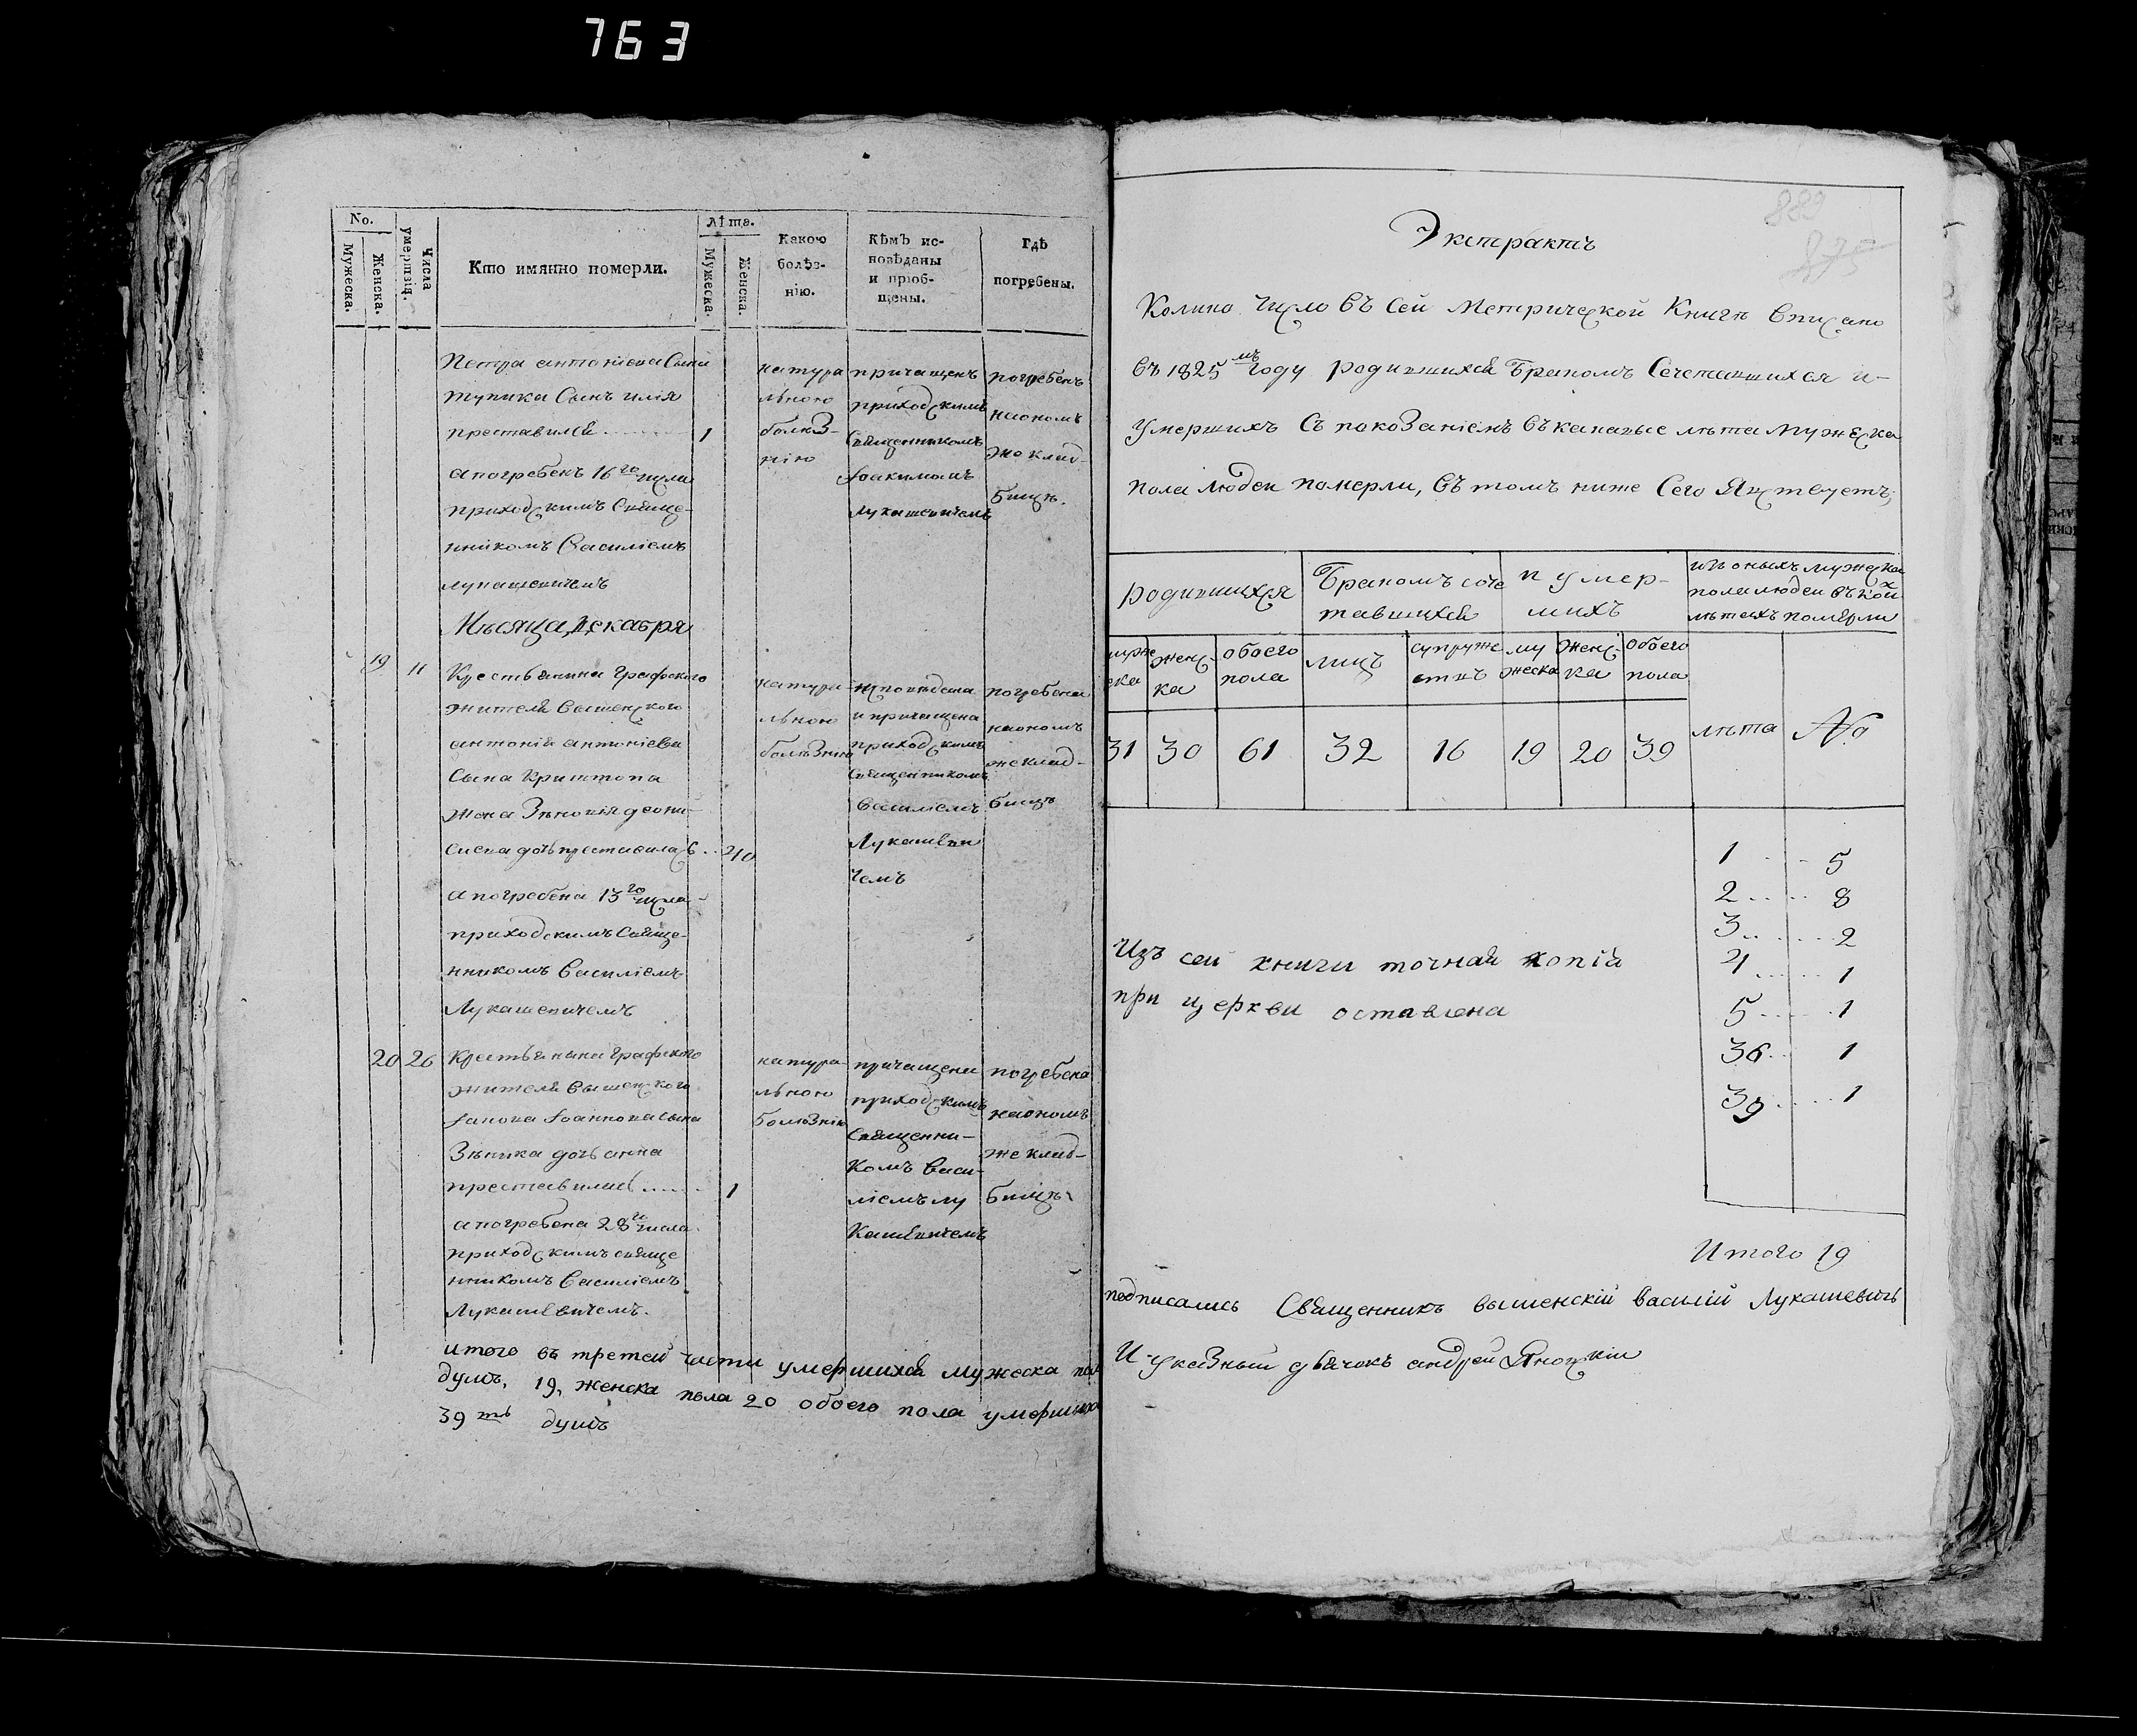 763
No.
Мужеска.
Женска.
Числа умершія.
Кто имянно померли.
Лѣта.
Мужеска.
Женска.
Какою
болѣз-
нію.
Кѣмъ ис-
повѣданы
и пріоб-
щены.
Гдѣ
погребены.
Петра антоніева Сына
Сынъ илія
преставился 1
а погребенъ 16го числа
приходскимъ Свяще-
нникомъ Василіемъ
лукашевичемъ
натура
льною
болѣз
нію
причащенъ
приходскимъ
Священникомъ
Іоакимомъ
Лукашевичемъ
погребенъ
наономъ
же клад-
бищѣ.
Мѣсяца, Декабря
19 11
Крестьянина Графского
жителя Вышенского
антонія антоніева
Сына
жена Зѣновія деони-
сиева дочь преставилась 40
а погребена 13го числа
приходскимъ Свяще-
нникомъ Василіемъ
Лукашевичемъ
натура
льною
болѣзнію
исповѣдана
и причащена
приходскимъ
Священникомъ
Василіемъ
Лукашеви
чемъ
погребена
наономъ
же клад-
бищѣ
20 26
Крестьянина Графского
жителя Вышенского
Іакова Іоаннова сына
Зѣнька дочь анна
преставилась 1
а погребена 28го числа
приходскимъ свяще
нникомъ Василіемъ
Лукашевичемъ.
натура-
льною
болѣзнію
причащена
приходскимъ
Священни-
комъ Васи-
ліемъ Лу
кашевичемъ
погребена
наономъ
же клад-
бищѣ
итого въ третей части умершихся мужеска пол
душъ, 19, женска пола 20 обоего пола умершихъ
39ть душъ
889
875
Экстрактъ
Колико число въ сей Метрической Книгѣ вписано
въ 1825мъ году родившихся Бракомъ Сочетавшихся и-
умершихъ Съ показаніемъ въ каковые лѣта мужеска
пола людей померли, въ томъ ниже Сего Явствуетъ;
родившихся
Бракомъ соче
тавшихся
и умер-
шихъ
изъ оныхъ мужеска
пола людей въ коихъ
лѣтахъ померли
муже
ска
женс-
ка
обоего
пола
лицъ
супруже
ствъ
му
жеска
женс-
ка
обоего
пола
лѣта
No
31 30 61 32 16 19 20 39
1 5
2 8
3 2
4 1
5 1
36 1
39 1
Изъ сей книги точная копія
при церкви оставлена
Итого 19
подписались Священникъ вышенскій василій Лукашевичь
И указный дьячокъ андрей